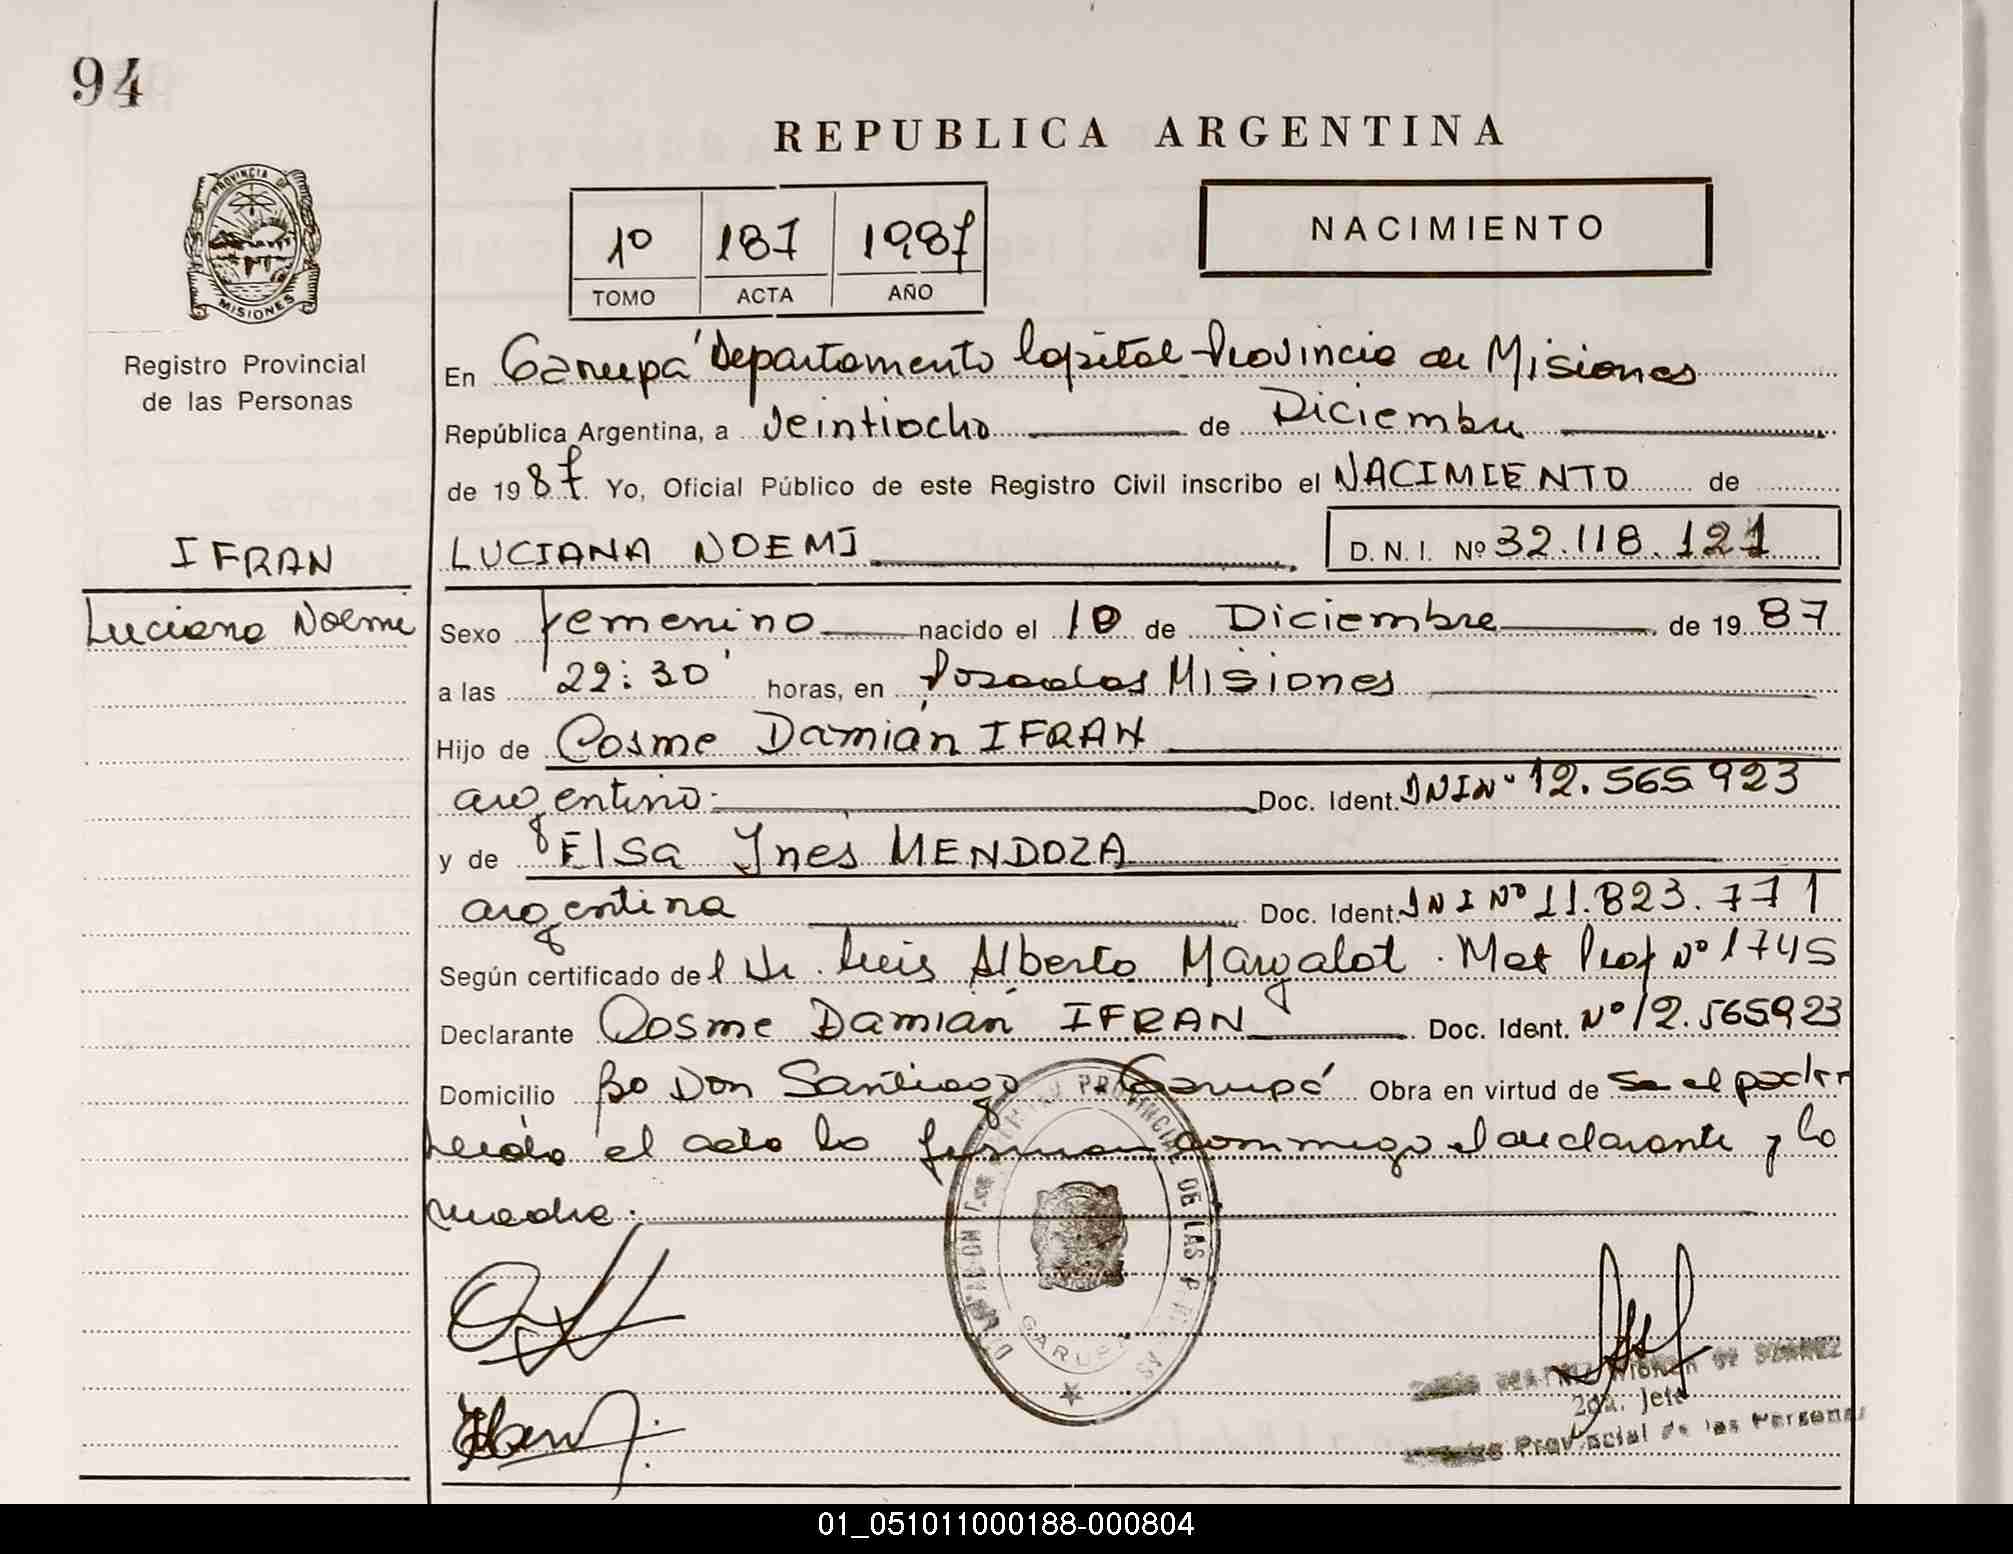 94
REPUBLICA ARGENTINA
PROVINCIA DE
MISIONES
Registro Provincial
de las Personas
1º 187 1987
TOMO ACTA AÑO
NACIMIENTO
En Garupá Departamento Capital Provincia de Misiones
República Argentina, a Veintiocho de Diciembre
de 1987. Yo, Oficial Público de este Registro Civil inscribo el NACIMIENTO de
IFRAN
Luciana Noemi
LUCIANA NOEMI D.N.I. Nº 32.118.121
Sexo femenino nacido el 10 de Diciembre de 1987
a las 22:30' horas, en Posadas Misiones
Hijo de Cosme Damián IFRAN
argentino. Doc. Ident. DNI Nº 12.565.923
y de Elsa Ynes MENDOZA
argentina Doc. Ident. DNI Nº 11.823.771
Según certificado del Dr. Luis Alberto Margalot. Mat Prof Nº 1745
Declarante Cosme Damián IFRAN Doc. Ident. Nº 12.565923
Domicilio Bo Don Santiago Garupá Obra en virtud de ser el padre
leída el acta la firman conmigo el declarante y la
madre.
REGISTRO PROVINCIAL DE LAS
GARUPA
DE SUAREZ
2da. Jefe
Provincial de las Personas
01_051011000188-000804